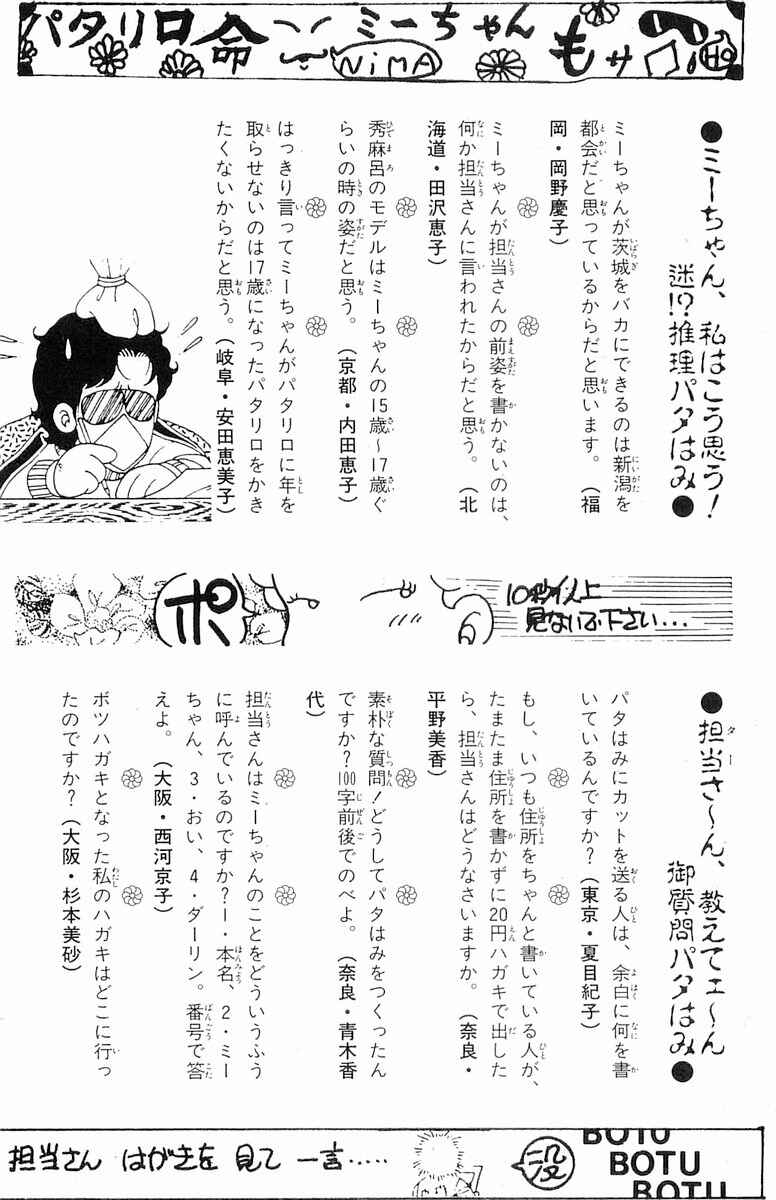 パタリロ命 ミーちゃん
NiMA
もサ
●ミーちゃん、私はこう思う!
迷!?推理パタはみ●
ミーちゃんが茨城をバカにできるのは新潟を
都会だと思っているからだと思います。(福
岡・岡野慶子)
ミーちゃんが担当さんの前姿を書かないのは、
何か担当さんに言われたからだと思う。(北
海道・田沢恵子)
秀麻呂のモデルはミーちゃんの15歳〜17歳ぐ
らいの時の姿だと思う。(京都・内田恵子)
はっきり言ってミーちゃんがパタリロに年を
取らせないのは17歳になったパタリロをかき
たくないからだと思う。(岐阜・安田恵美子)
ポ
10秒以上
見ないで下さい...
●担当さ〜ん、教えてェ〜ん
御質問パタはみ●
パタはみにカットを送る人は、余白に何を書
いているんですか?(東京・夏目紀子)
もし、いつも住所をちゃんと書いている人が、
たまたま住所を書かずに20円ハガキで出した
ら、担当さんはどうなさいますか。(奈良・
平野美香)
素朴な質問!どうしてパタはみをつくったん
ですか?100字前後でのべよ。(奈良・青木香
代)
担当さんはミーちゃんのことをどういうふう
に呼んでいるのですか?1・本名、2・ミー
ちゃん、3・おい、4・ダーリン。番号で答
えよ。(大阪・西河京子)
ボツハガキとなった私のハガキはどこに行っ
たのですか?(大阪・杉本美砂)
担当さん はがきを 見て 一言.....
没
BOTU
BOTU
BOTU